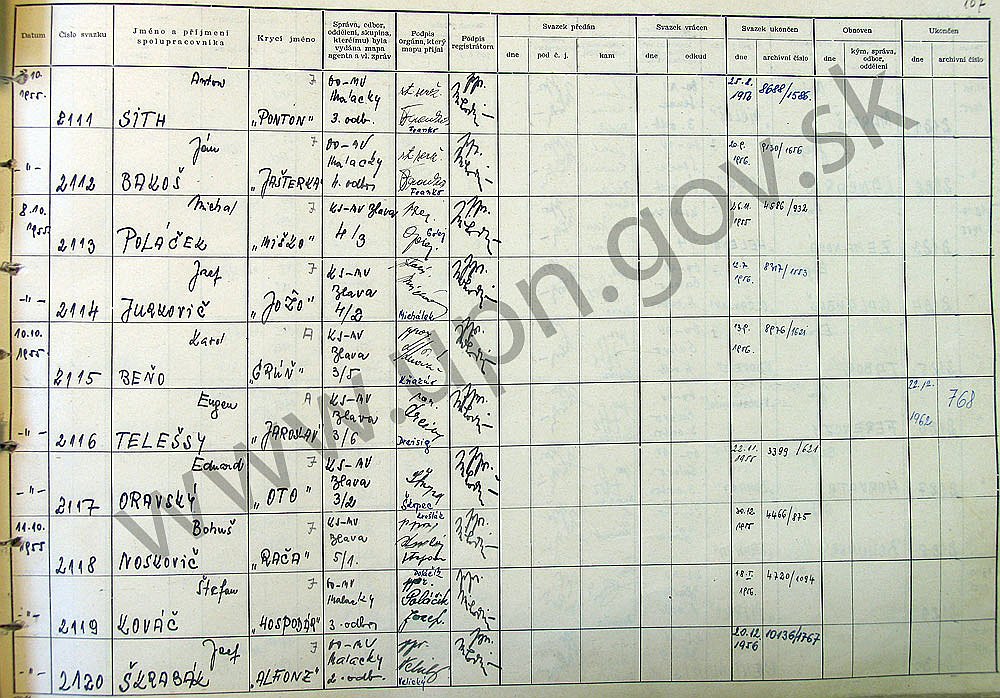 107
Datum Číslo svazku Jméno a příjmení spolupracovníka Krycí jméno Správa, odbor, oddělení, skupina, které(mu) byla vydána mapa agenta a vl. zpráv Podpis orgána, který mapu přijal Podpis registrátora Svazek předán Svazek vrácen Svazek ukončen Obnoven Ukončen
dne pod č. j. kam dne odkud dne archivní číslo dne kým, správa, odbor, oddělení dne archivní číslo
10. 1955 2111 Anton SÍTH 7 „PONTON" OO-MV Malacky 3. odb. st. serž. Franko 25.8. 1956 8688/1586.
-"- 2112 Ján BAKOŠ 7 „JAŠTERKA" OO-MV Malacky 4. odbor st. serž. Franko 20.9. 1956. 9130/1656
8.10. 1955 2113 Michal POLÁČEK 7 „MIŠKO" KS-MV Blava 4/3 26.11. 1955 4586/932
-"- 2114 Jozef JURKOVIČ 7 „JOŽO" KS-MV Blava 4/2 Michálek 12.7. 1956.
10.10. 1955 2115 Karol BEŇO A „GRÜN" KS-MV Blava 3/5 Kňazúr 13.9. 1956. 8976/1621
-"- 2116 Eugen TELEŠSY A „JAROSLAV" KS-MV Blava 3/6 Dreisig 22.12. 1962 768
-"- 2117 Eduard ORAVSKÝ 7 „OTO" KS-MV Blava 3/2 Škopec 22.11. 1955 3399/621
11.10. 1955 2118 Bohuš NOSKOVIČ 7 „RAČA" KS-MV Blava 5/1. Krošlák 20.12. 1955 4466/875
-"- 2119 Štefan KOVÁČ 7 „HOSPODÁR" OO-MV Malacky 3. odbor Poláčik Jozef. 18.I. 1956. 4720/1094
-"- 2120 Jozef ŠKRABÁK 7 „ALFONZ" OO-MV Malacky 2. odbor. Velický 20.12. 1956 10136/1767
www.upn.gov.sk